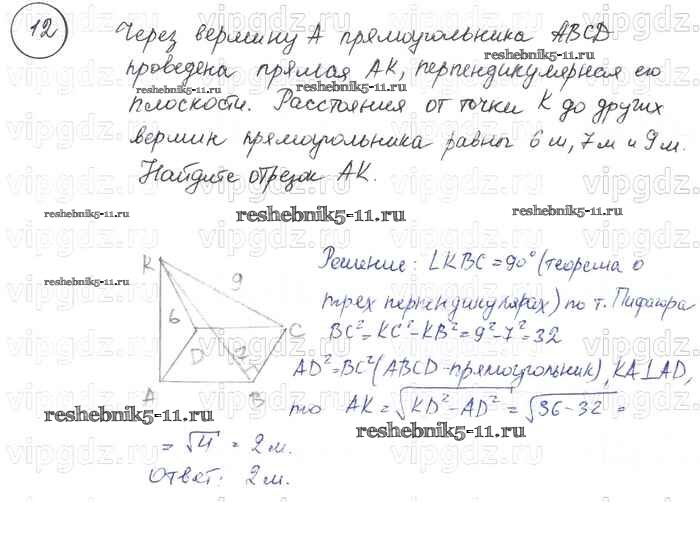 12
Через вершину А прямоугольника ABCD
проведена прямая АК, перпендикулярная его
плоскости. Расстояния от точки К до других
вершин прямоугольника равны 6 м, 7 м и 9 м.
Найдите отрезок АК.
reshebnik5-11.ru
reshebnik5-11.ru
reshebnik5-11.ru
reshebnik5-11.ru
reshebnik5-11.ru
K
9
6
D
7
C
A
B
reshebnik5-11.ru
Решение: ∠KBC = 90° (теорема о
трех перпендикулярах) по т. Пифагора
BC² = KC² - KB² = 9² - 7² = 32
AD² = BC² (ABCD - прямоугольник), KA⊥AD,
то AK = √KD² - AD² = √36 - 32 =
reshebnik5-11.ru
reshebnik5-11.ru
= √4 = 2 м.
Ответ: 2 м.
vipgdz.ru